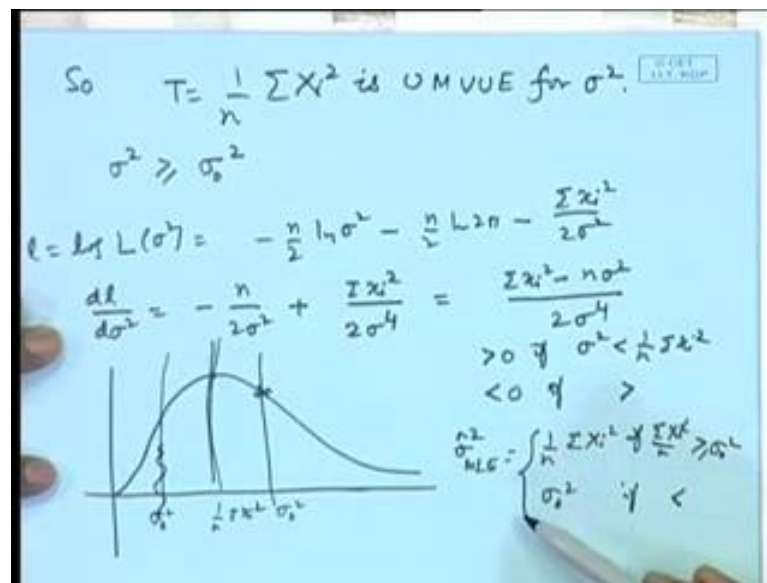 So T = 1/n ΣXi² is UMVUE for σ².
σ² ≥ σ₀²
l = log L(σ²) = - n/2 ln σ² - n/2 ln 2π - Σxi²/2σ²
dl/dσ² = - n/2σ² + Σxi²/2σ⁴ = Σxi² - nσ²/2σ⁴
>0 if σ² < 1/n Σxi²
<0 if >
σ̂²MLE = { 1/n ΣXi² if ΣXi²/n ≥ σ₀²
σ₀² if <
σ₀² 1/n Σxi² σ₀²